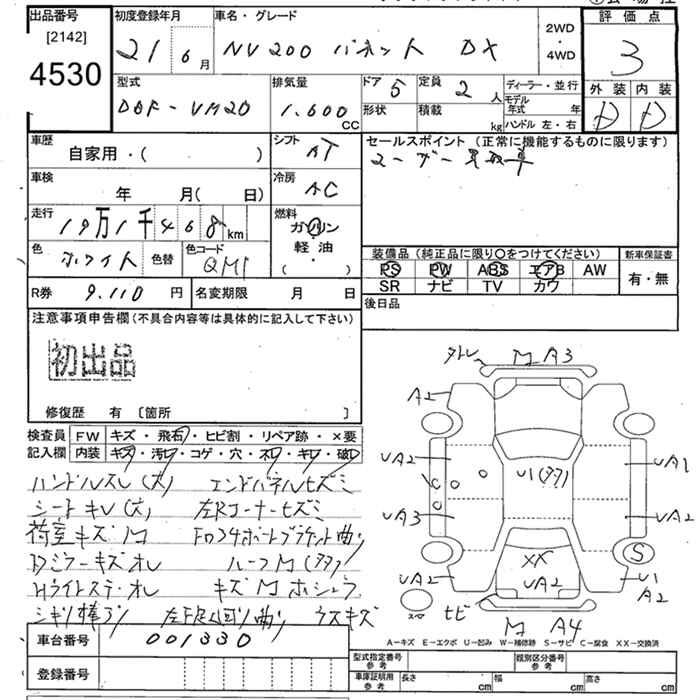 出品番号
[2142]
4530
初度登録年月
21 6月
車名・グレード
NV200 バネット DX
2WD
・
4WD
評価点
3
外装 内装
D D
型式
DBF-VM20
排気量
1.600
CC
ドア 5
定員 2 人
形状
積載 kg
ディーラー・並行
モデル年式 年
ハンドル 左・右
車歴
自家用・( )
シフト
AT
セールスポイント (正常に機能するものに限ります)
ユーザー買取車
車検
年 月( 日)
冷房
AC
走行
19万1千468km
燃料
ガソリン
・
軽・油
( )
色
ホワイト
色替
色コード
QM1
装備品 (純正品に限り○をつけてください)
PS PW ABS エアB AW
SR ナビ TV カワ
新車保証書
有・無
R券 9.110 円
名変期限 月 日
後日品
注意事項申告欄 (不具合内容等は具体的に記入して下さい)
初出品
修復歴 有 [箇所 ]
検査員記入欄
FW キズ・飛石・ヒビ割・リペア跡・×要
内装 キズ・汚レ・コゲ・穴・ネレ・キレ・破レ
ハンドルスレ(大) エンドパネルヒズミ
シートキレ(大) 左Rコーナーヒズミ
荷室キズM Fロアサポートブラケット曲り
Dミラーキズオレ ルーフM(多タ)
Hライトステーオレ キズMホシュウ
ウスキズ
車台番号 001330
登録番号
M A3
A2
UA2
UA3
UA2
U1(多タ)
UA1
UA2
S
U1
A2
XX
UA2
ヒビ
M A4
A−キズ E−エクボ U−凹み W−補修跡 S−サビ C−腐食 XX−交換済
型式指定番号
参考
類別区分番号
参考
車庫証明用
参考
長さ cm
幅 cm
高さ cm